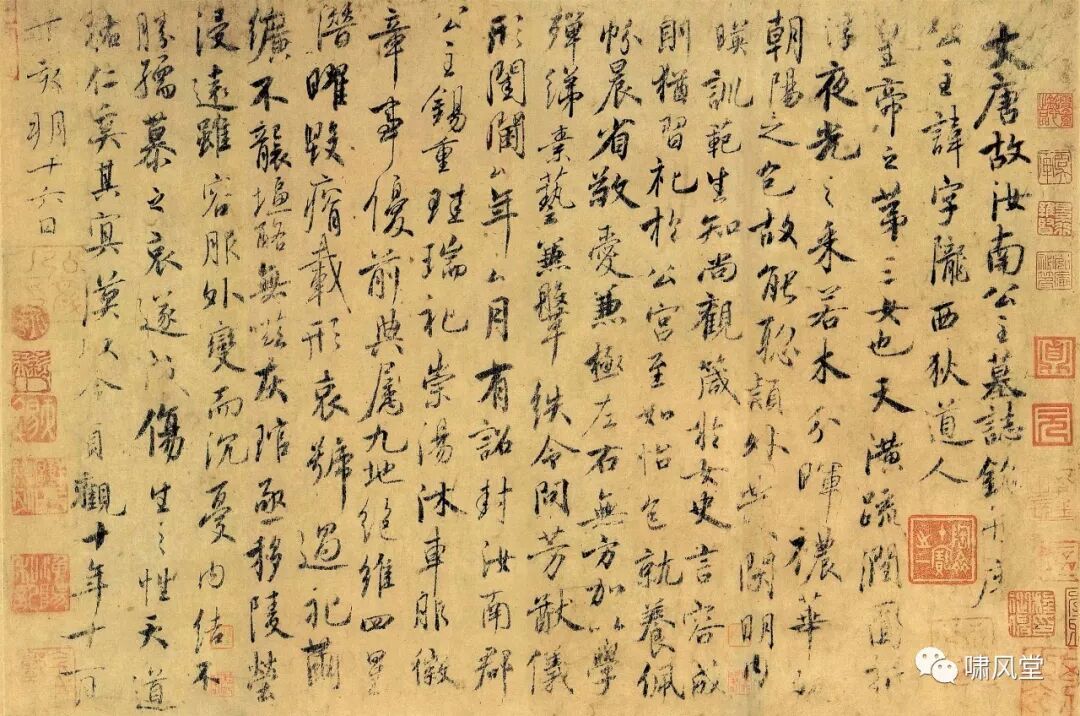 大唐故汝南公主墓誌銘并序
公主諱字隴西狄道人
皇帝之第三女也天潢疏潤圓折
浮夜光之采若木分暉穠華
朝陽之色故能聰穎外發閑明內
暎訓範生知尚觀箴於女史言容成
則猶習礼於公宮至如怡色就養佩
帉晨省敬愛兼極左右無方加以學
殫綈素藝兼鞶紩令問芳猷儀
形閨閫厶年厶月有詔封汝南郡
公主錫重珪瑞礼崇湯沐車服徽
章事優前典屬九地絕維四星
潛曜毀瘠載形哀號過礼繭
纊不襲塩酪無嗞灰琯亟移陵塋
浸遠雖容服外變而沉憂內結不
勝孺慕之哀遂成傷生之性天道
祐仁奚其冥漠以今貞觀十年十一月
丁亥朔十六日
啸风堂